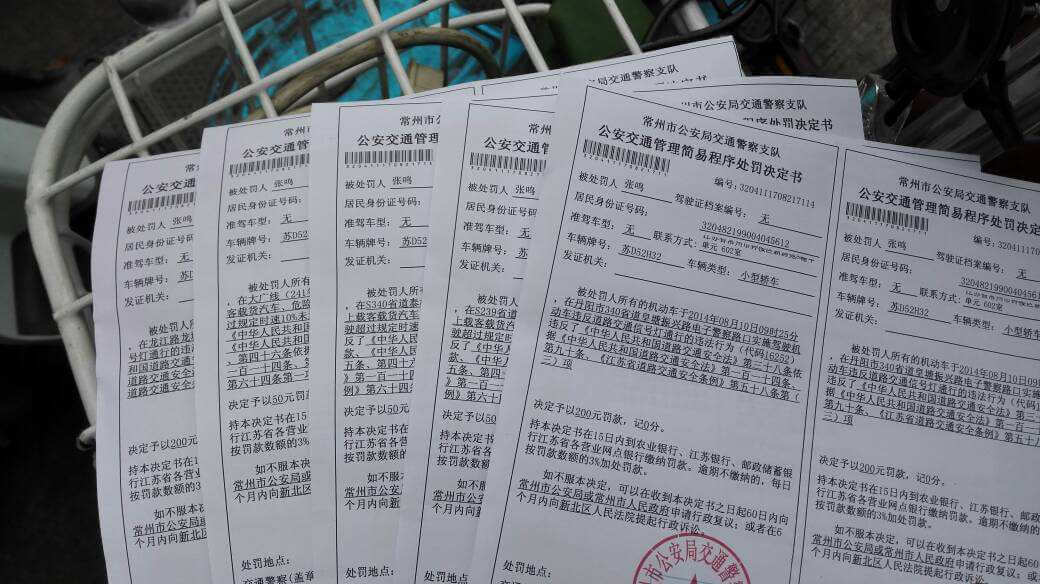 常州市公安局交通警察支队
公安交通管理简易程序处罚决定书
编号:3204111708217114
被处罚人 张鸣
驾驶证档案编号: 无
居民身份证号码: 320482199004045612
准驾车型: 无 联系方式:
单元 602室
车辆牌号: 苏D52H32 车辆类型: 小型轿车
发证机关:
被处罚人所有的机动车于2014年08月10日09时25分
,在丹阳市340省道皇塘振兴路电子警察路口实施驾驶机
动车违反道路交通信号灯通行的违法行为(代码16252)
违反了《中华人民共和国道路交通安全法》第三十八条依
据《中华人民共和国道路交通安全法》第一百一十四条、
第九十条、《江苏省道路交通安全条例》第五十八条第(
二)项
决定予以200元罚款,记0分。
持本决定书在15日内到农业银行、江苏银行、邮政储蓄银
行江苏省各营业网点银行缴纳罚款。逾期不缴纳的,每日
按罚款数额的3%加处罚款。
如不服本决定,可以在收到本决定书之日起60日内向
常州市公安局或常州市人民政府申请行政复议;或者在6
个月内向新北区人民法院提起行政诉讼。
州市公安局交通警
常州市公安局交通警察支队
公安交通管理简易程序处罚决定
编号:32041117
被处罚人 张鸣
驾驶证档案编号: 无
居民身份证号码: 320482199004045
准驾车型: 无 联系方式:
车辆牌号: 苏D52H32 车辆类型: 小型轿
发证机关:
被处罚人所有的机动车于2014年08月10日09
,在丹阳市340省道皇塘振兴路电子警察路口实施
动车违反道路交通信号灯通行的违法行为(代码
违反了《中华人民共和国道路交通安全法》第三
据《中华人民共和国道路交通安全法》第一百一
第九十条、《江苏省道路交通安全条例》第五十
二)项
决定予以200元罚款,记0分。
持本决定书在15日内到农业银行、江苏银行、邮政
行江苏省各营业网点银行缴纳罚款。逾期不缴纳的
按罚款数额的3%加处罚款。
如不服本决定,可以在收到本决定书之日起6
常州市公安局或常州市人民政府申请行政复议;
个月内向新北区人民法院提起行政诉讼。
常州市
公安交通管
被处罚人 张鸣
居民身份证号码:
准驾车型: 无
车辆牌号: 苏
发证机关:
被处罚人
,在S239省道
上载客载货汽
驶超过规定时
反了《中华人
款、《中华人
五条、第四十
第一百一十
例》第六十
决定予以50元
持本决定书在
行江苏省各营
按罚款数额的
如不服本
常州市公安局
个月内向新北
处罚地点:
常州市公
公安交通管
被处罚人 张鸣
居民身份证号码:
准驾车型: 无
车辆牌号: 苏D52
发证机关:
被处罚人所
,在S340省道泰
上载客载货汽车
驶超过规定时速
反了《中华人民
款、《中华人民
五条、第四十六
《第一百一十四
例》第六十四
决定予以50元罚
持本决定书在15
行江苏省各营业
按罚款数额的3%
如不服本决
常州市公安局或
个月内向新北区
处罚地点:
常州市公
公安交通管
被处罚人 张鸣
居民身份证号码:
准驾车型: 无
车辆牌号: 苏D
发证机关:
被处罚人
,在大广线(241
客载货汽车、危险
过规定时速10%未
《中华人民共和国
《中华人民共和国
、第四十六条依
一百一十四条、
第六十四条第一
决定予以50元罚
持本决定书在15
行江苏省各营业
按罚款数额的3%
如不服本决
常州市公安局或
个月内向新北区
处罚地点:
交通警察(盖章
公安交通
被处罚人 张鸣
居民身份证号码
准驾车型: 无
车辆牌号: 苏
发证机关:
被处罚人
,在龙江路龙
号灯通行的违
和国道路交通
国道路交通安
道路交通安全
决定予以200元
持本决定书在
行江苏省各营
按罚款数额的
如不服本
常州市公安局
个月内向新北
常州市公安局交通警察支队
州市公安局交通警察支队
程序处罚决定书